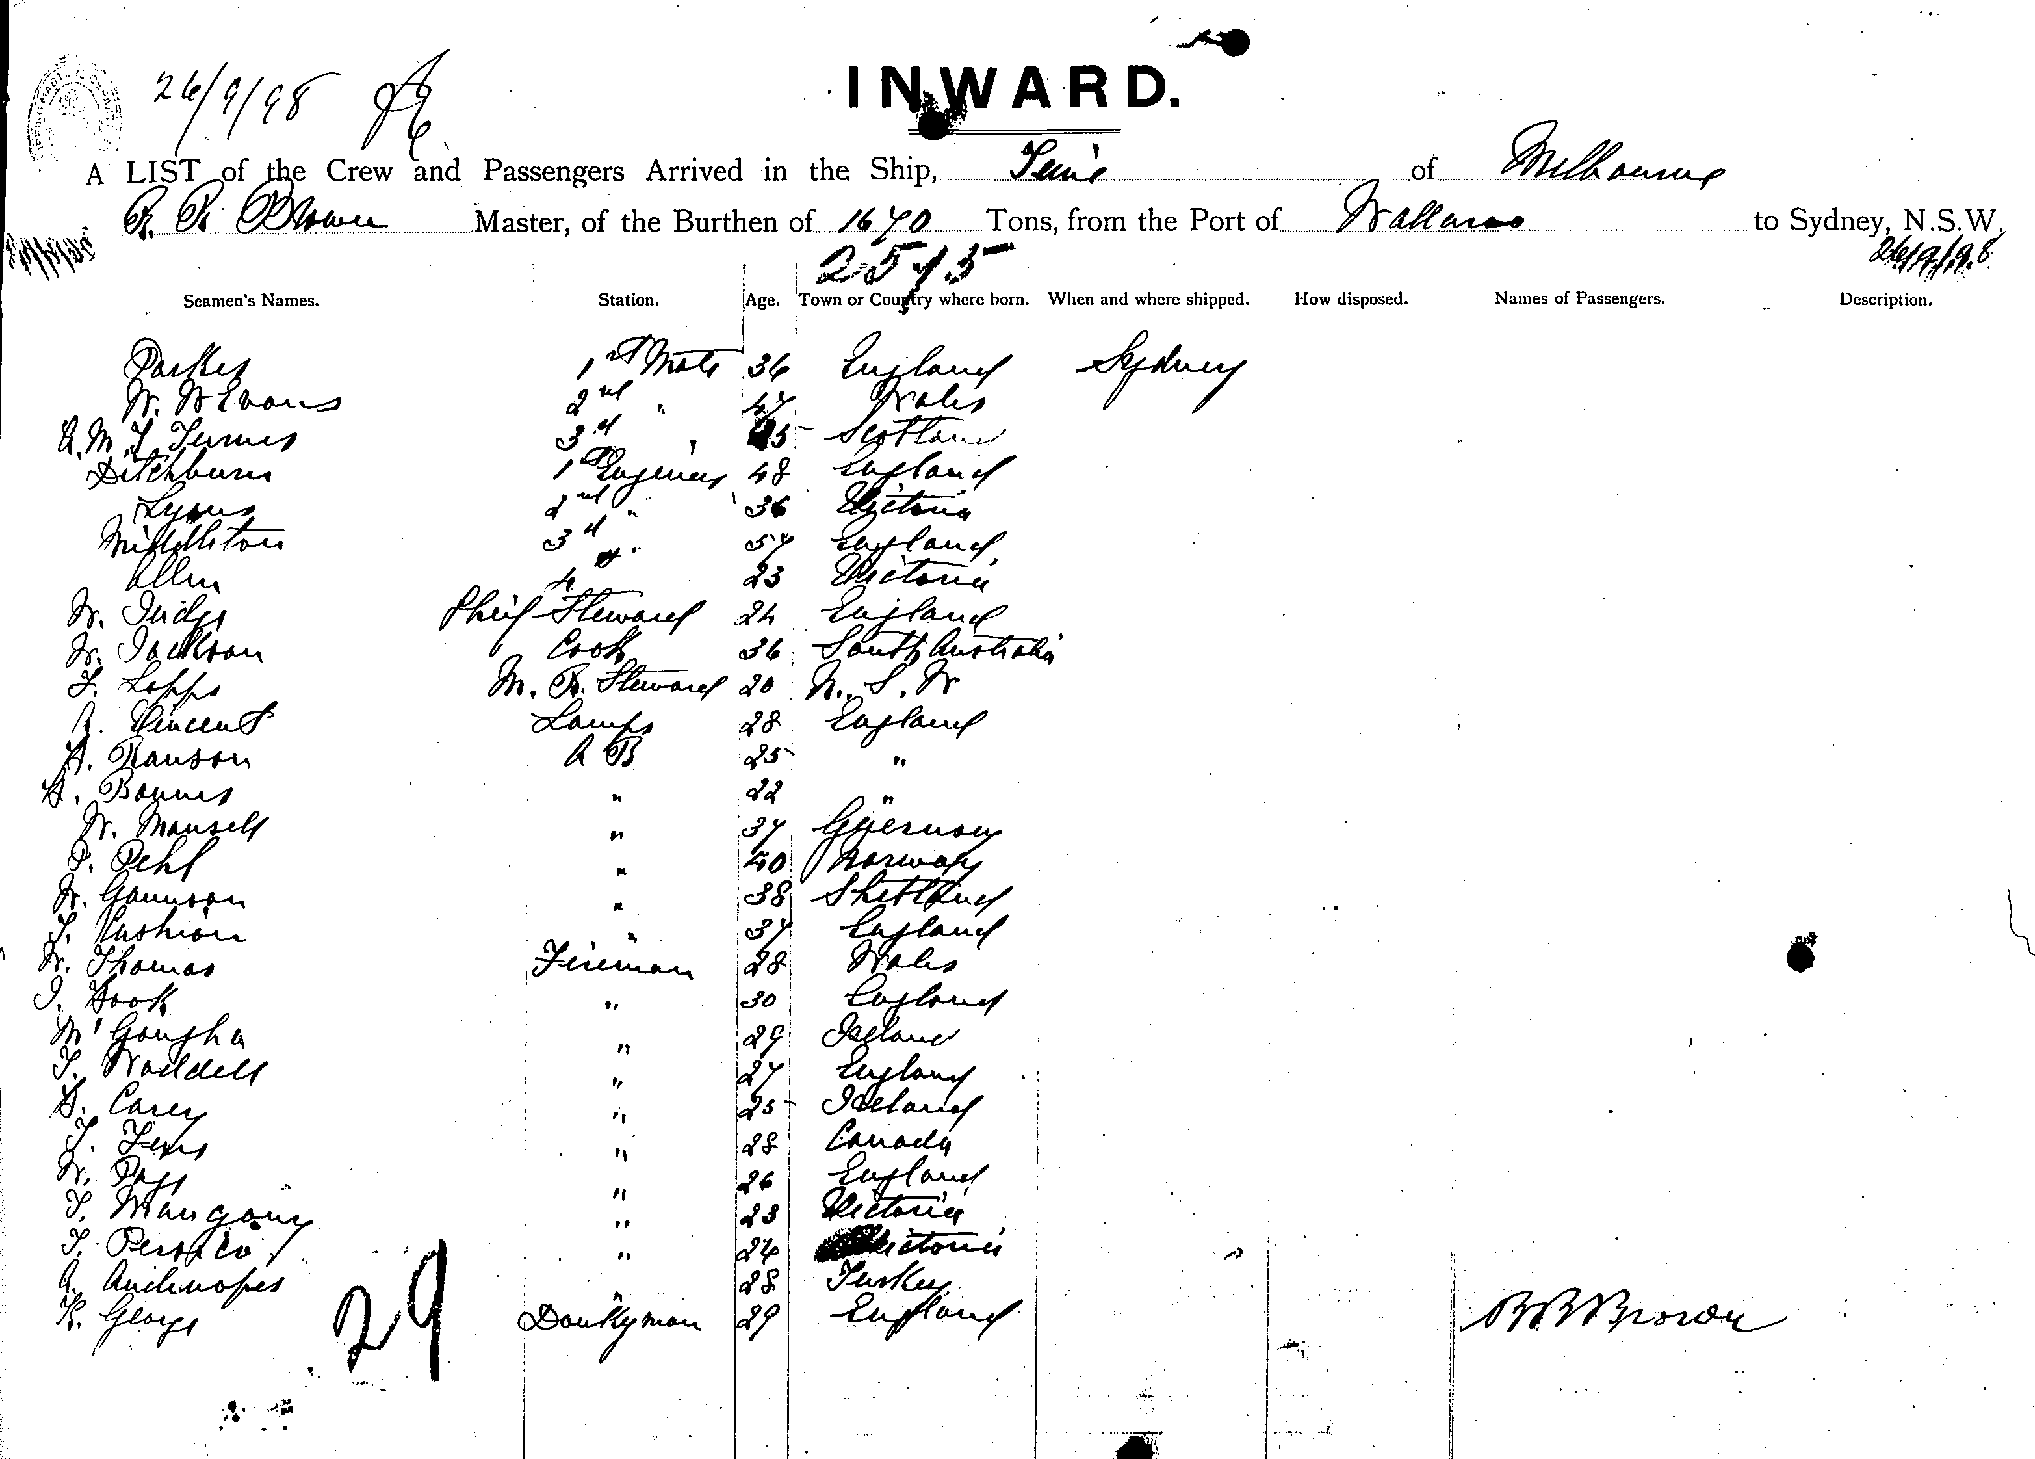 26/9/98
INWARD.
A LIST of the Crew and Passengers Arrived in the Ship, of Melbourne
R. R. Brown Master, of the Burthen of 1670 Tons, from the Port of Wallaroo to Sydney, N.S.W.
2575 26/9/98
Seamen's Names. Station. Age. Town or Country where born. When and where shipped. How disposed. Names of Passengers. Description.
Parkes 1st Mate 36 England Sydney
W. W Evans 2nd " 47 Wales
A. M. T. 3rd " Scotland
Ditchburn 1st Engineer 48 England
Lyons 2nd " 36 Victoria
Middleton 3rd " 57 England
Allen 4 " 23 Victoria
W. Chief Steward 24 England
W. Jackson Cook 36 South Australia
M. R. Steward 20 N. S. W
A. Vincent Lamps 28 England
H. Ranson A B 25 "
H. " 22 "
W. Mansell " 37 Guernsey
P. Pehl " 40 Norway
W. " 38 Shetland
T. Cushion " 37 England
W. Thomas Fireman 28 Wales
J. Hook " 30 England
" 29 Ireland
T. Waddell " 27 England
D. Carey " 25 Ireland
T. " 28 Canada
W. Page " 26 England
T. Mangany " 23 Victoria
T. " 24 Victoria
A. " 28 Turkey
K. George Donkyman 29 England
29
R R Brown